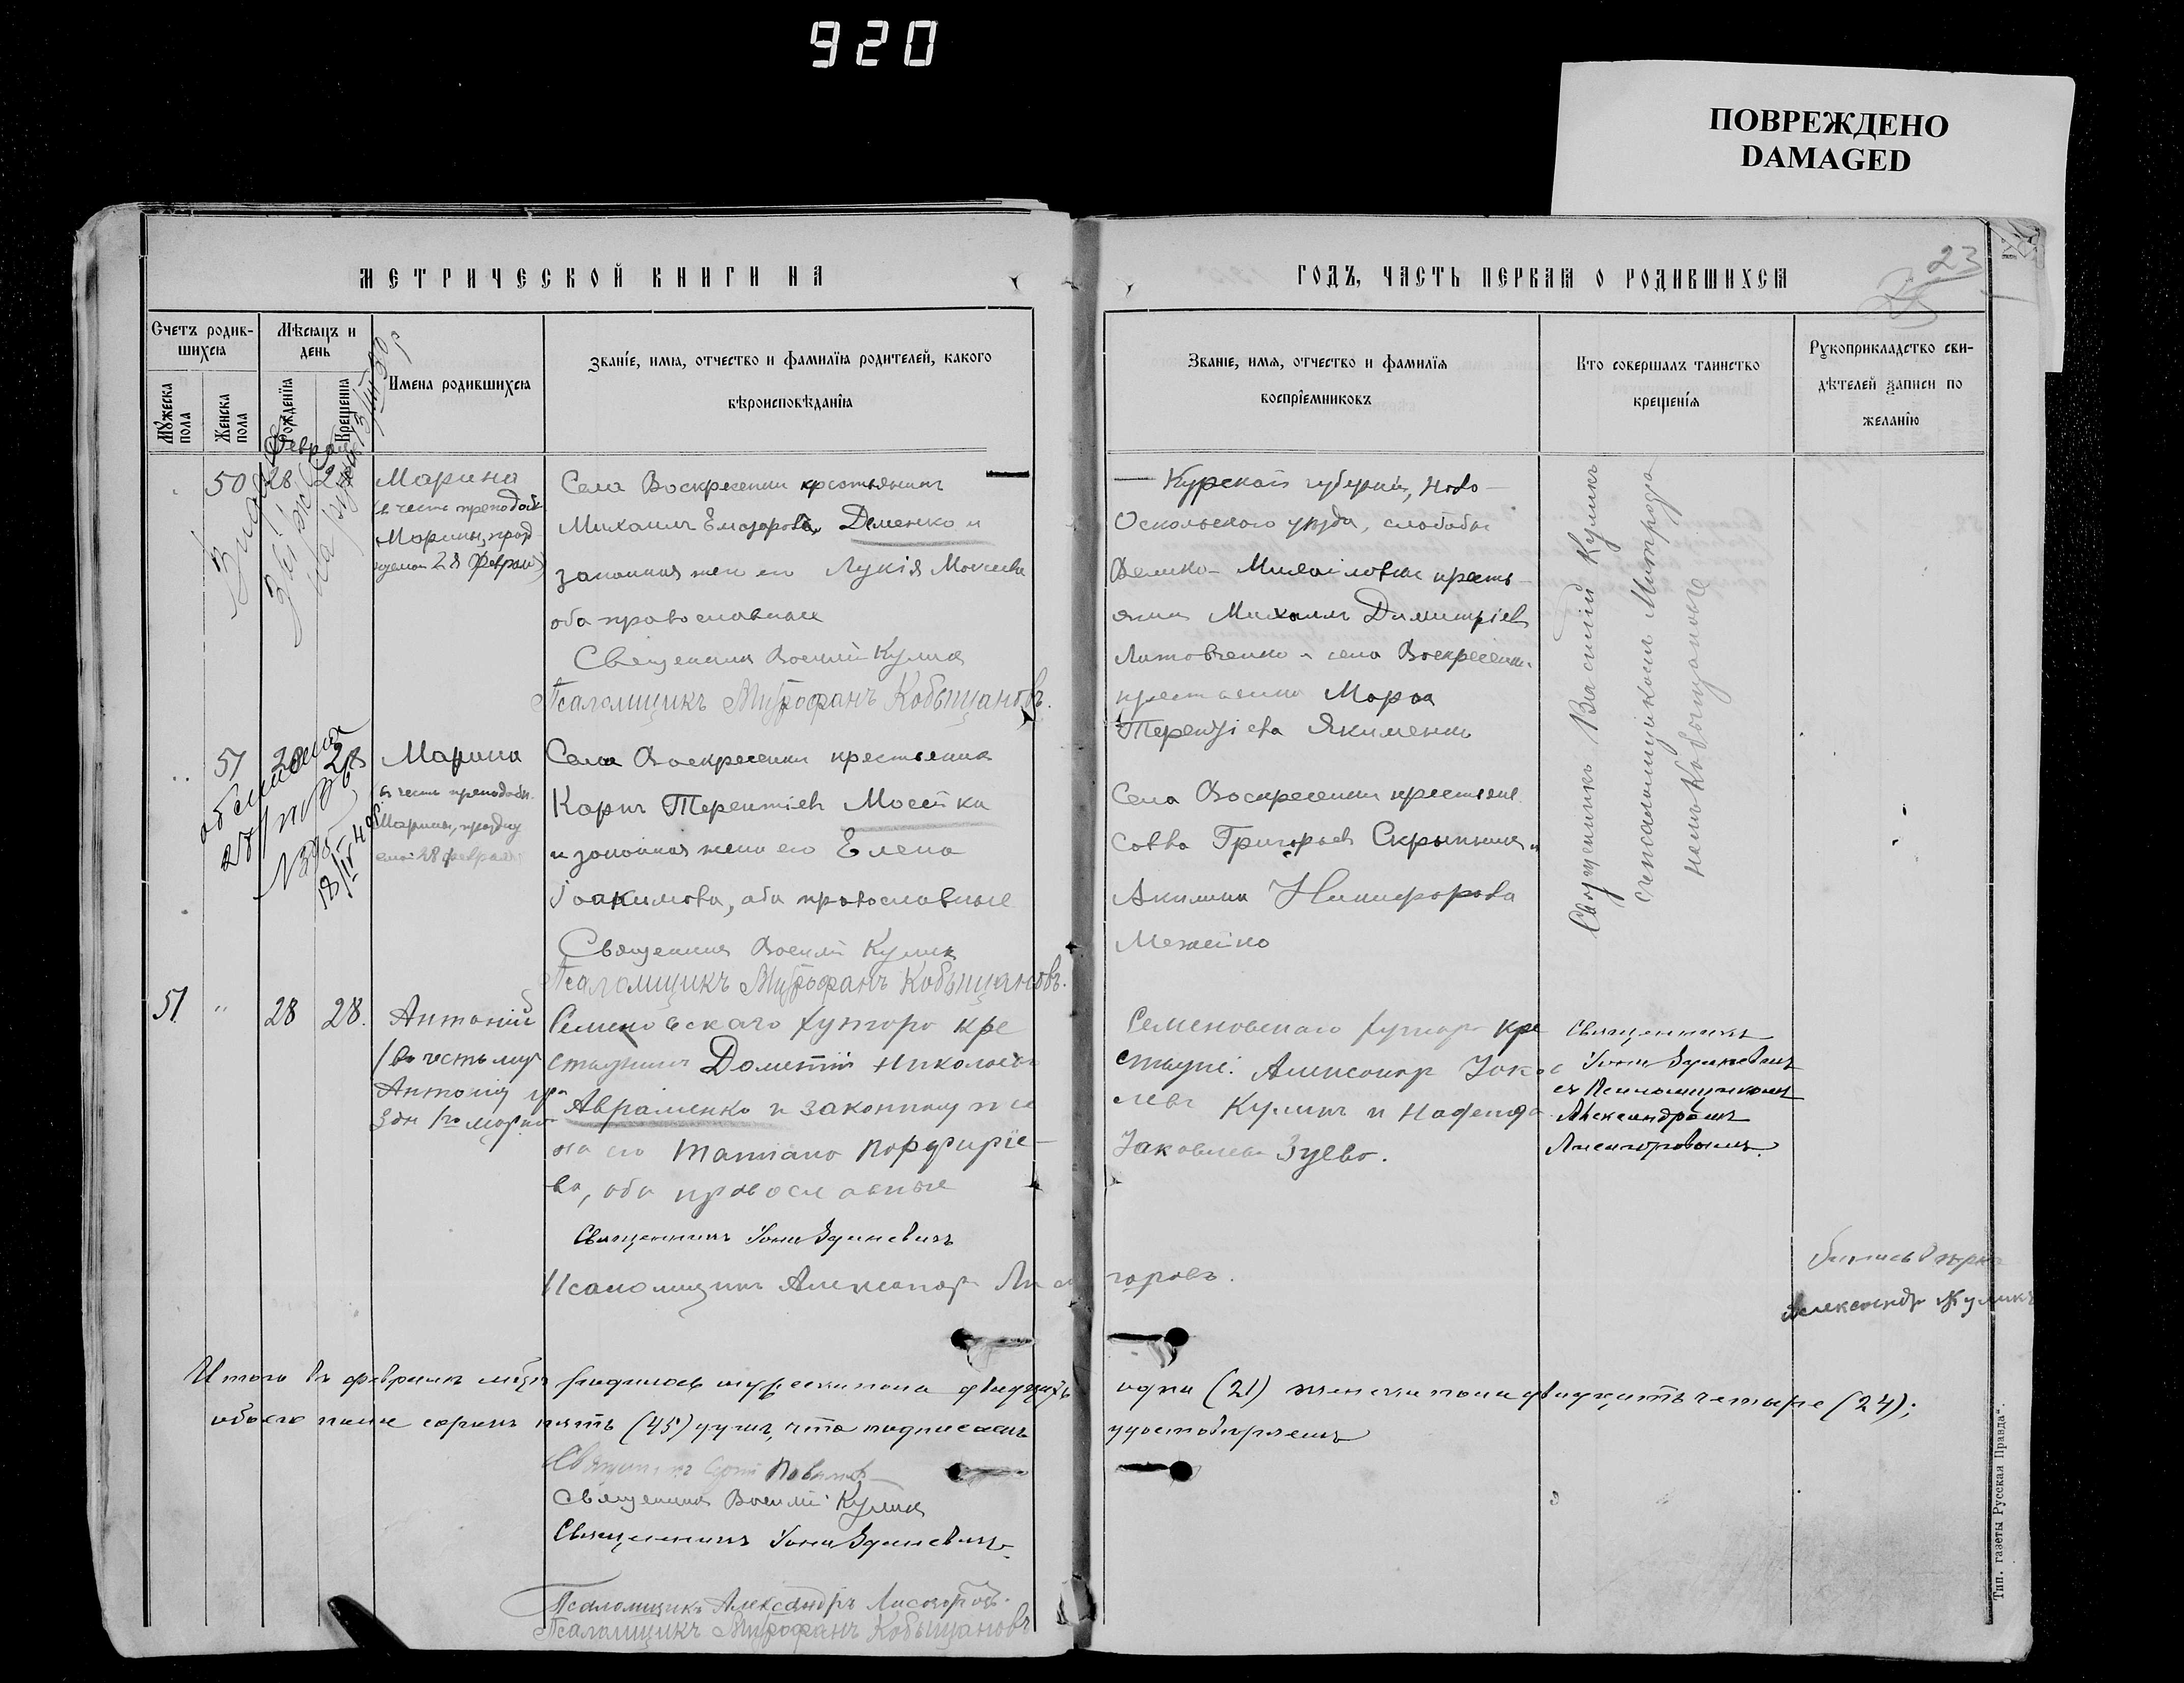 920
ПОВРЕЖДЕНО
DAMAGED
МЕТРИЧЕСКОЙ КНИГИ НА
ГОДЪ, ЧАСТЬ ПЕРВАЯ О РОДИВШИХСЯ
23
Счетъ родив-
шихся
Мѣсяцъ и
день
Имена родившихся
Званіе, имя, отчество и фамилія родителей, какого
вѣроисповѣданія
Мужеска
пола
Женска
пола
Рожденія
Крещенія
Званіе, имя, отчество и фамилія
воспріемниковъ
Кто совершалъ таинство
крещенія
Рукоприкладство сви-
дѣтелей записи по
желанію
50 28 28
Марина
(в честь преподоб.
Марины, празд
28 Февраля)
Села Воскресенки крестьянинъ
Михаилъ Деменко и
законная жена его Лукія Моисеева
оба православные
Священникъ Василій Куликъ
Псаломщикъ Митрофанъ Кобыщановъ.
Курской губерніи, Ново-
Оскольского уезда, слободы
Велико-Михайловки кресть-
янин Михаилъ Димитріев
Литовченко и села Воскресенки
крестьянка Марфа
Терентіева Якименко
Священникъ Василій Куликъ
с псаломщикомъ Митрофа
номъ Кобыщановымъ
51 28 28
Марина
(в честь преподобн.
Марины, праздну
емой 28 февраля)
Села Воскресенки крестьянинъ
Карпъ Терентіевъ Мосейко
и законная жена его Елена
Іоакимова, оба православные
Священникъ Василій Куликъ
Псаломщикъ Митрофанъ Кобыщановъ.
Села Воскресенки крестьяне
Савва Григорьевъ Скрыпникъ и
Акилина Никифорова
Мосейко
51. " 28 28.
Антоній
(въ честь муч
Антонія пра
здн 1го марта
Семеновскаго хутора кре
стьянинъ Дометій Николаевъ
Авраменко и законная же
на его Татіана Порфиріе-
ва, оба православные
Священникъ Іоаннъ
Псаломщикъ Александръ Лисогоровъ.
Семеновскаго хутора кре
стьяне: Александръ Іако
влевъ Куликъ и Надежда
Іаковлева Зуева.
Священникъ
Іоаннъ
съ Псаломщикомъ
Александромъ
Лисогоровымъ.
Александръ Куликъ
Итого въ февралѣ мѣсяцѣ родилось мужеска пола двадцать
одна (21) женска пола двадцать четыре (24);
обоего пола сорокъ пять (45) душъ, что подписомъ
удостовѣряемъ
Священникъ
Священникъ Василій Куликъ
Священникъ Іоаннъ
Псаломщикъ Александръ Лисогоровъ.
Псаломщикъ Митрофанъ Кобыщановъ
Тип. газеты Русская Правда".